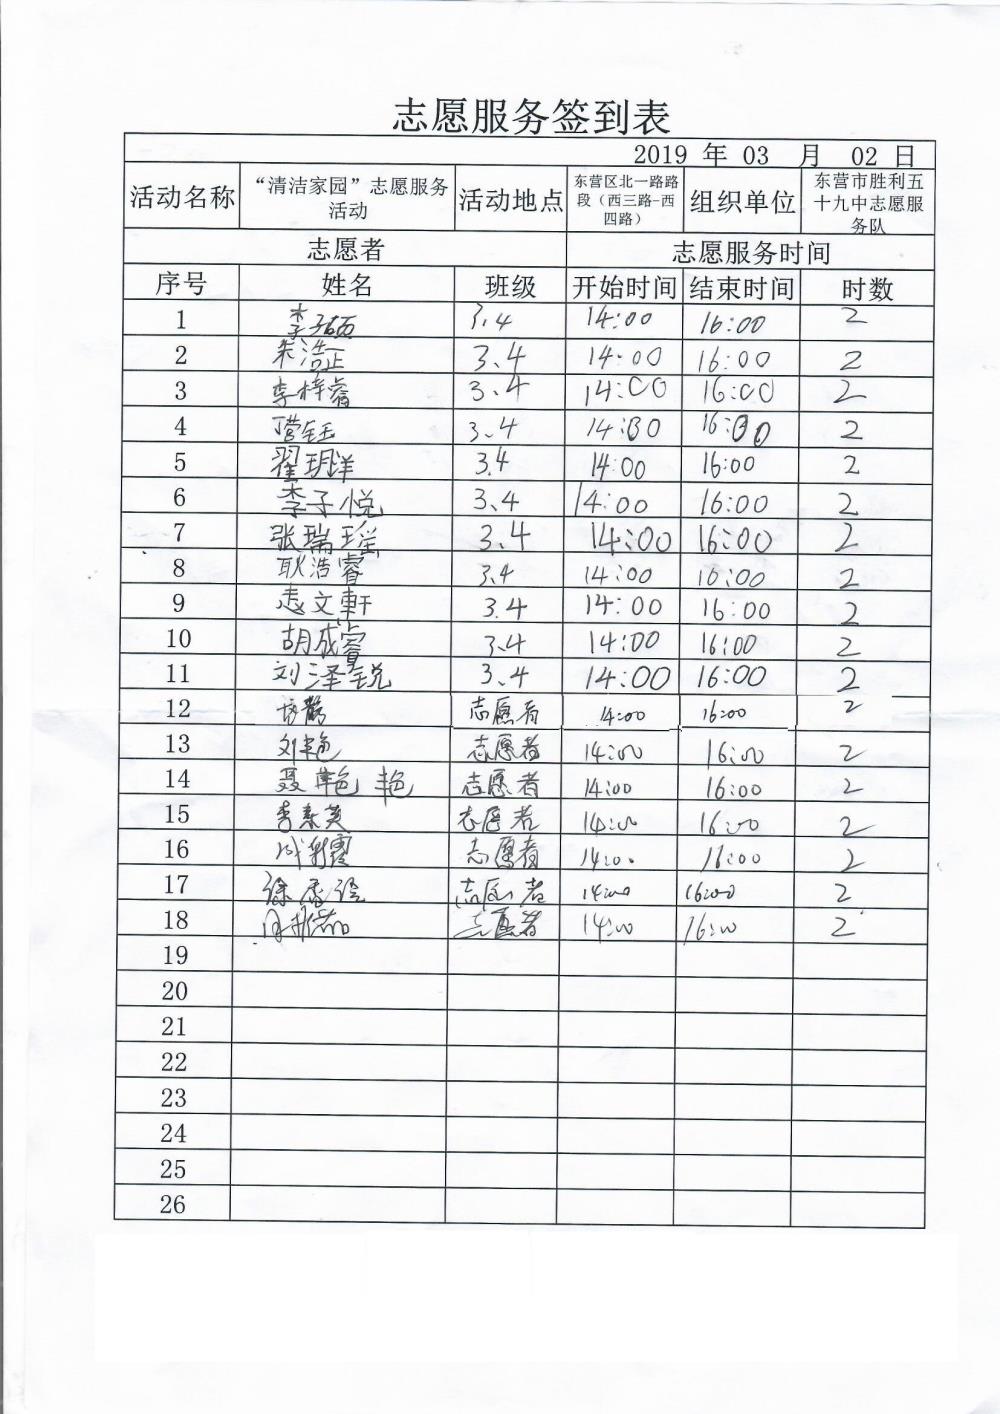 志愿服务签到表
2019 年 03 月 02 日
活动名称 “清洁家园”志愿服务活动 活动地点 东营区北一路路段（西三路-西四路） 组织单位 东营市胜利五十九中志愿服务队
志愿者 志愿服务时间
序号 姓名 班级 开始时间 结束时间 时数
1 李子硕 3.4 14:00 16:00 2
2 朱浩正 3.4 14:00 16:00 2
3 李梓睿 3.4 14:00 16:00 2
4 3.4 14:00 16:00 2
5 翟玥洋 3.4 14:00 16:00 2
6 李子悦 3.4 14:00 16:00 2
7 张瑞瑶 3.4 14:00 16:00 2
8 耿浩睿 3.4 14:00 16:00 2
9 文軒 3.4 14:00 16:00 2
10 胡成睿 3.4 14:00 16:00 2
11 刘泽锐 3.4 14:00 16:00 2
12 志愿者 14:00 16:00 2
13 刘艳 志愿者 14:00 16:00 2
14 聂艳艳 志愿者 14:00 16:00 2
15 李素英 志愿者 14:00 16:00 2
16 志愿者 14:00 16:00 2
17 徐 志愿者 14:00 16:00 2
18 志愿者 14:00 16:00 2
19
20
21
22
23
24
25
26